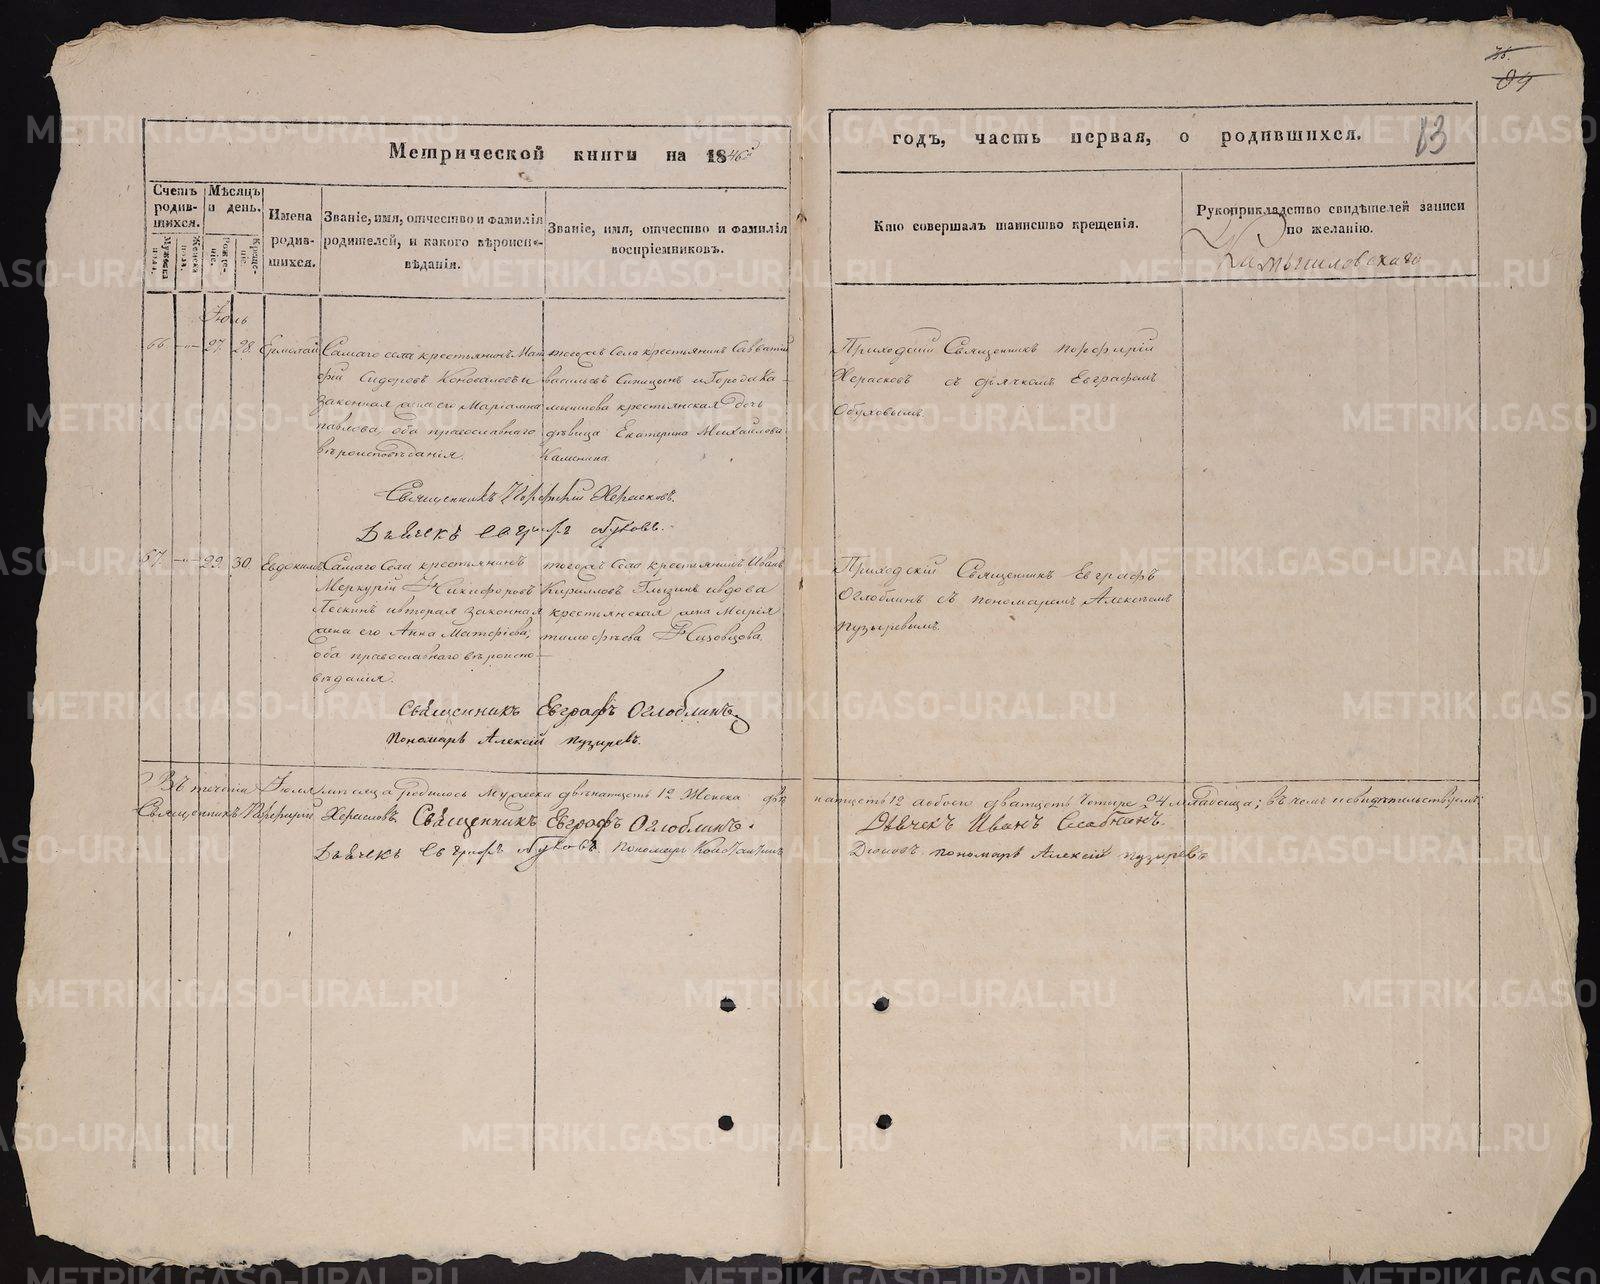 Метрической книги на 1846й
годъ, часть первая, о родившихся.
13
Счетъ родив-шихся.
Мужеска пола.
Женска пола.
Мѣсяцъ и день.
Рожде-ніе.
Креще-ніе.
Имена родив-шихся.
Званіе, имя, отчество и фамилія
родителей, и какого вѣроиспо-
вѣданія.
Званіе, имя, отчество и фамилія
воспріемниковъ.
Кто совершалъ таинство крещенія.
Рукоприкладство свидѣтелей записи
по желанію.
Камышловскаго
Іюль
66 27. 28. Ермолай
Самаго села крестьянинъ Мат
фій Сидоровъ Коноваловъ и
законная жена его Маріамна
павлова, оба православнаго
вѣроисповѣданія.
тогожъ Села крестьянинъ Савватій
васильевъ Синицынъ и Города Ка-
мышлова крестьянская дочь
дѣвица Екатерина Михайлова
Каменина.
Приходскій Священникъ порфирій
Херасковъ съ дьячкомъ Евграфомъ
Обуховымъ.
Священникъ Порфирій Херасковъ.
Дьячекъ Евграфъ Обуховъ.
67. 29. 30. Евдокимъ
Самаго Села крестьянинъ
Меркурій Никифоровъ
Пескинъ и вторая законная
жена его Анна Матфіева,
оба православнаго вѣроиспо-
вѣданія.
тогожъ Села крестьянинъ Иванъ
Кирилловъ Глызинъ и вдова
крестьянская жена Марія
тимофѣева
Приходскій Священникъ Евграфъ
Оглоблинъ съ пономаремъ Алексѣемъ
пузыревымъ.
Священникъ Евграфъ Оглоблинъ
Пономарь Алексій пузыревъ.
Въ теченіи Іюля мѣсяца родилось Мужеска двѣнатцеть 12 Женска двѣ
натцеть 12 обоего дватцеть четыре 24 младенца; въ чемъ и свидѣтельствуемъ:
Священникъ Порфирій Херасковъ. Священникъ Евграфъ Оглоблинъ.
Дьячекъ Иванъ Слабнинъ.
Дьячекъ Евграфъ Обуховъ. Пономарь Константинъ
Пономарь Алексій пузыревъ
METRIKI.GASO-URAL.RU